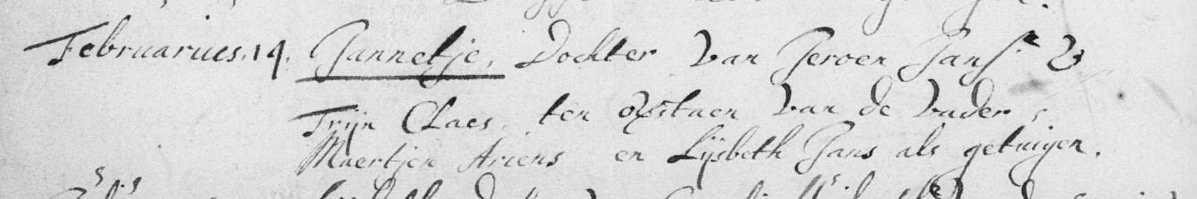 Februarius. 14. Jannetje, Dochter van Jeroen Jans.n &
Trijn Claes, ten opstaen van de vader,
Maertjen Ariens en Lijsbeth Jans als getuigen.